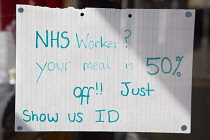 NHS Worker?
your meal is 50%
off!! Just
Show us ID